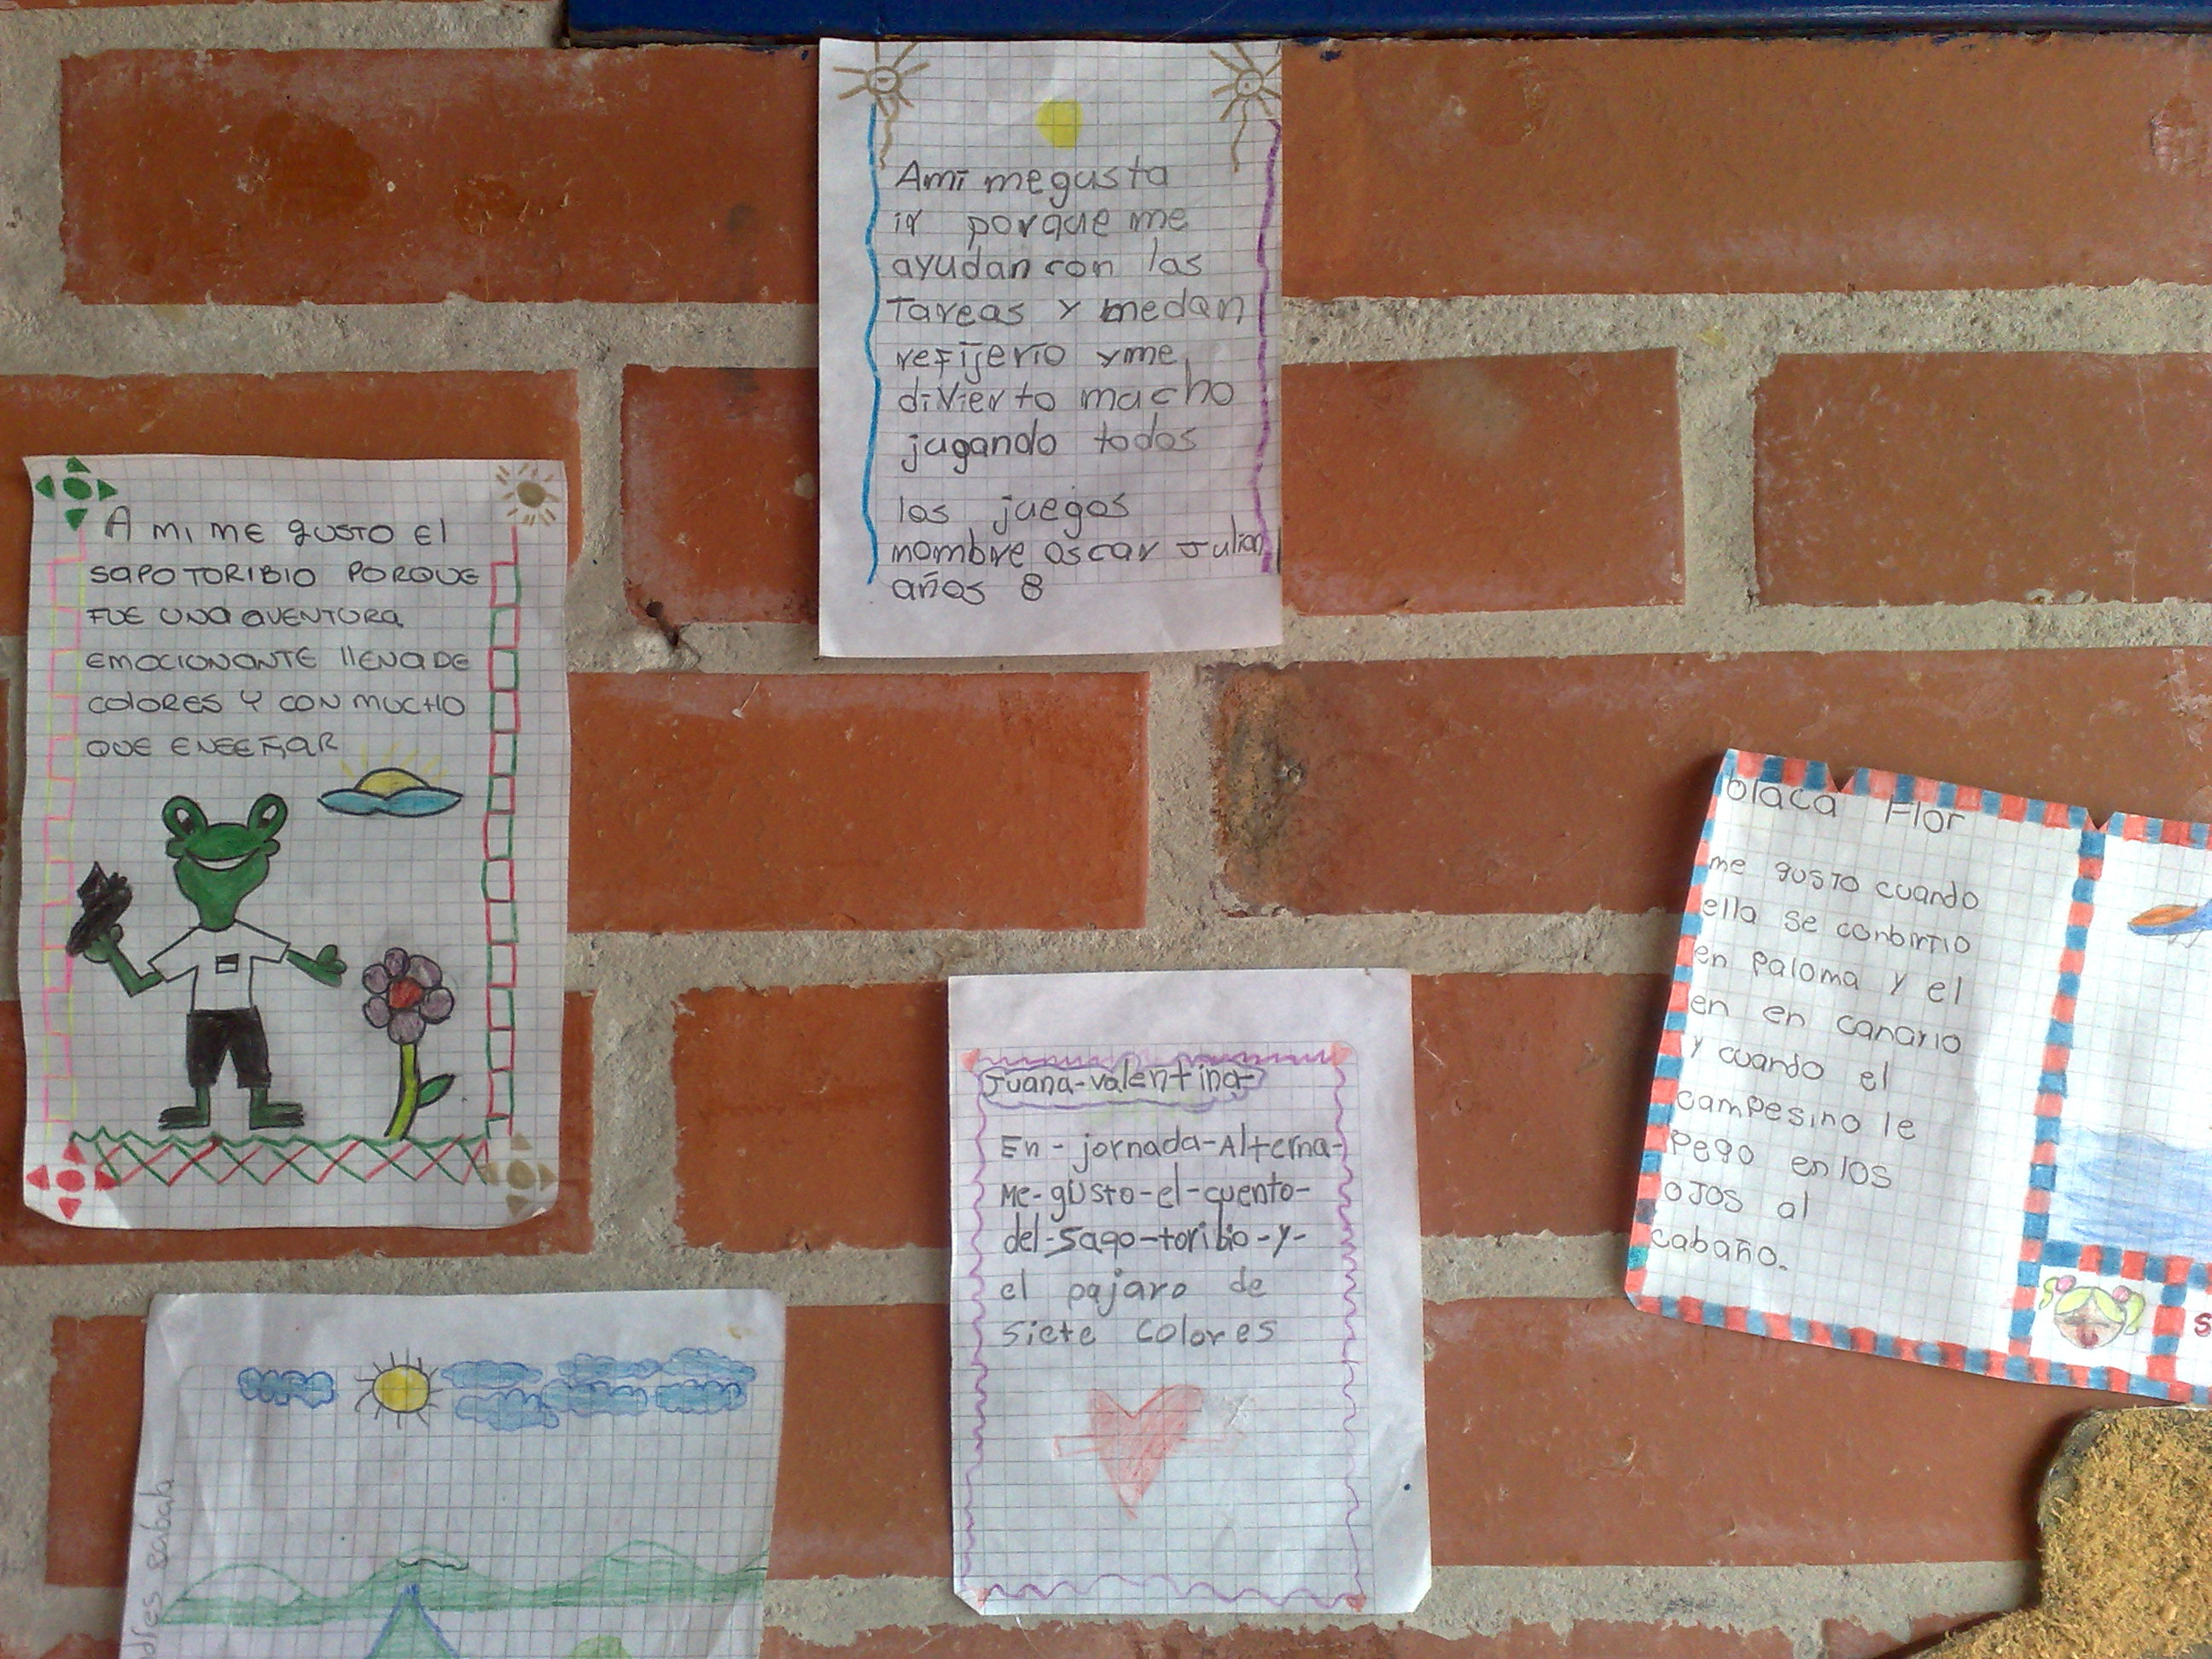 Ami me gusta
ir porque me
ayudan con las
Tareas y medan
refijerio yme
divierto mucho
jugando todos
los juegos
nombre oscar Julian
años 8
A mi me gusto El
sapo TORIBIO PORQUE
FUE UNA AVENTURA
EMOCIONANTE llENA DE
COlORES Y CON MUCHO
QUE ENEEÑAR
blaca Flor
me gusto cuando
ella se conbirtio
en paloma y el
en en canario
y cuando el
campesino le
pego en los
ojos al
cabaño.
Juana-valentina-
En-jornada-Alterna-
Me-gusto-el-cuento-
del-sapo-toribio-y-
el pajaro de
siete colores